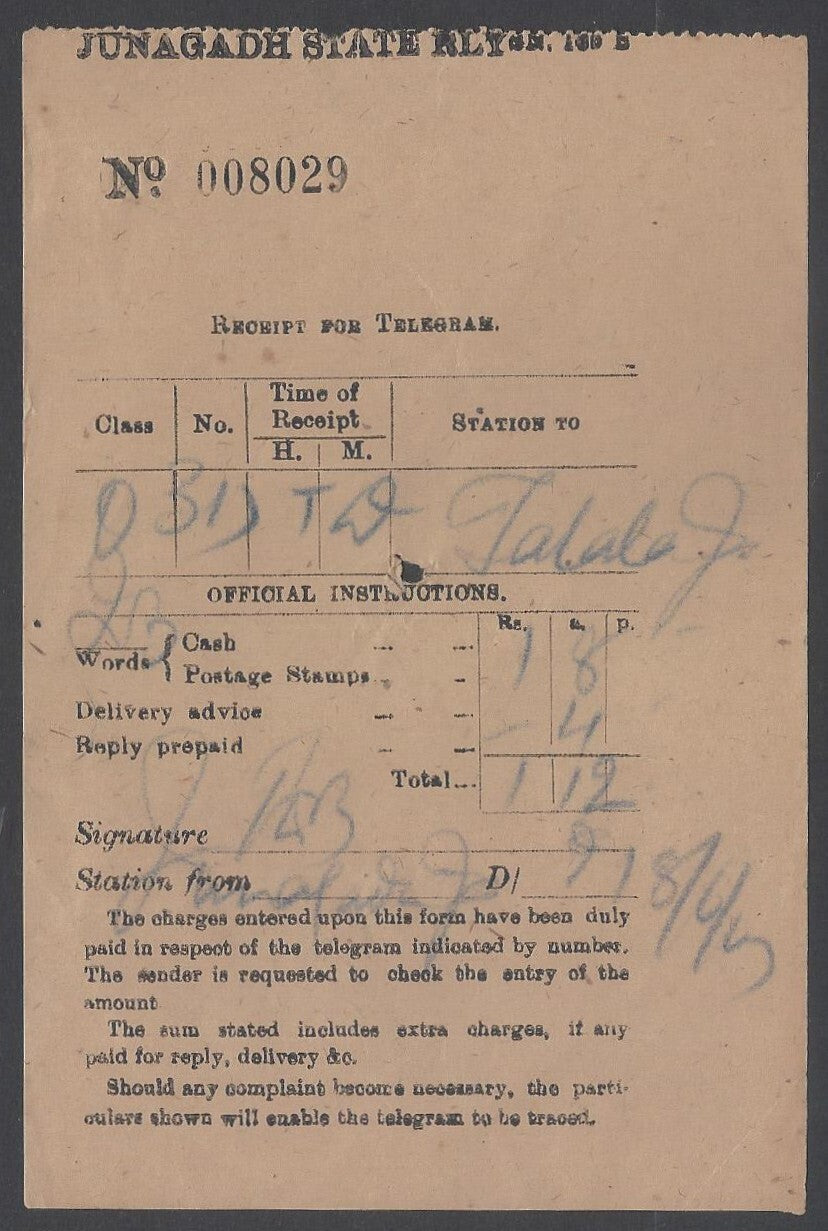 JUNAGADH STATE RLY GN. 169 B
Nº 008029
RECEIPT FOR TELEGRAM.
Class No. Time of Receipt H. M. STATION TO
Talala Jn
OFFICIAL INSTRUCTIONS.
Rs. a. p.
Words { Cash ... ... 1 8
Postage Stamps ... -
Delivery advice ... ... - 4
Reply prepaid - ...
Total... 1 12
Signature
Station from D/
The charges entered upon this form have been duly
paid in respect of the telegram indicated by number.
The sender is requested to check the entry of the
amount
The sum stated includes extra charges, if any
paid for reply, delivery &c.
Should any complaint become necessary, the parti-
culars shown will enable the telegram to be traced.